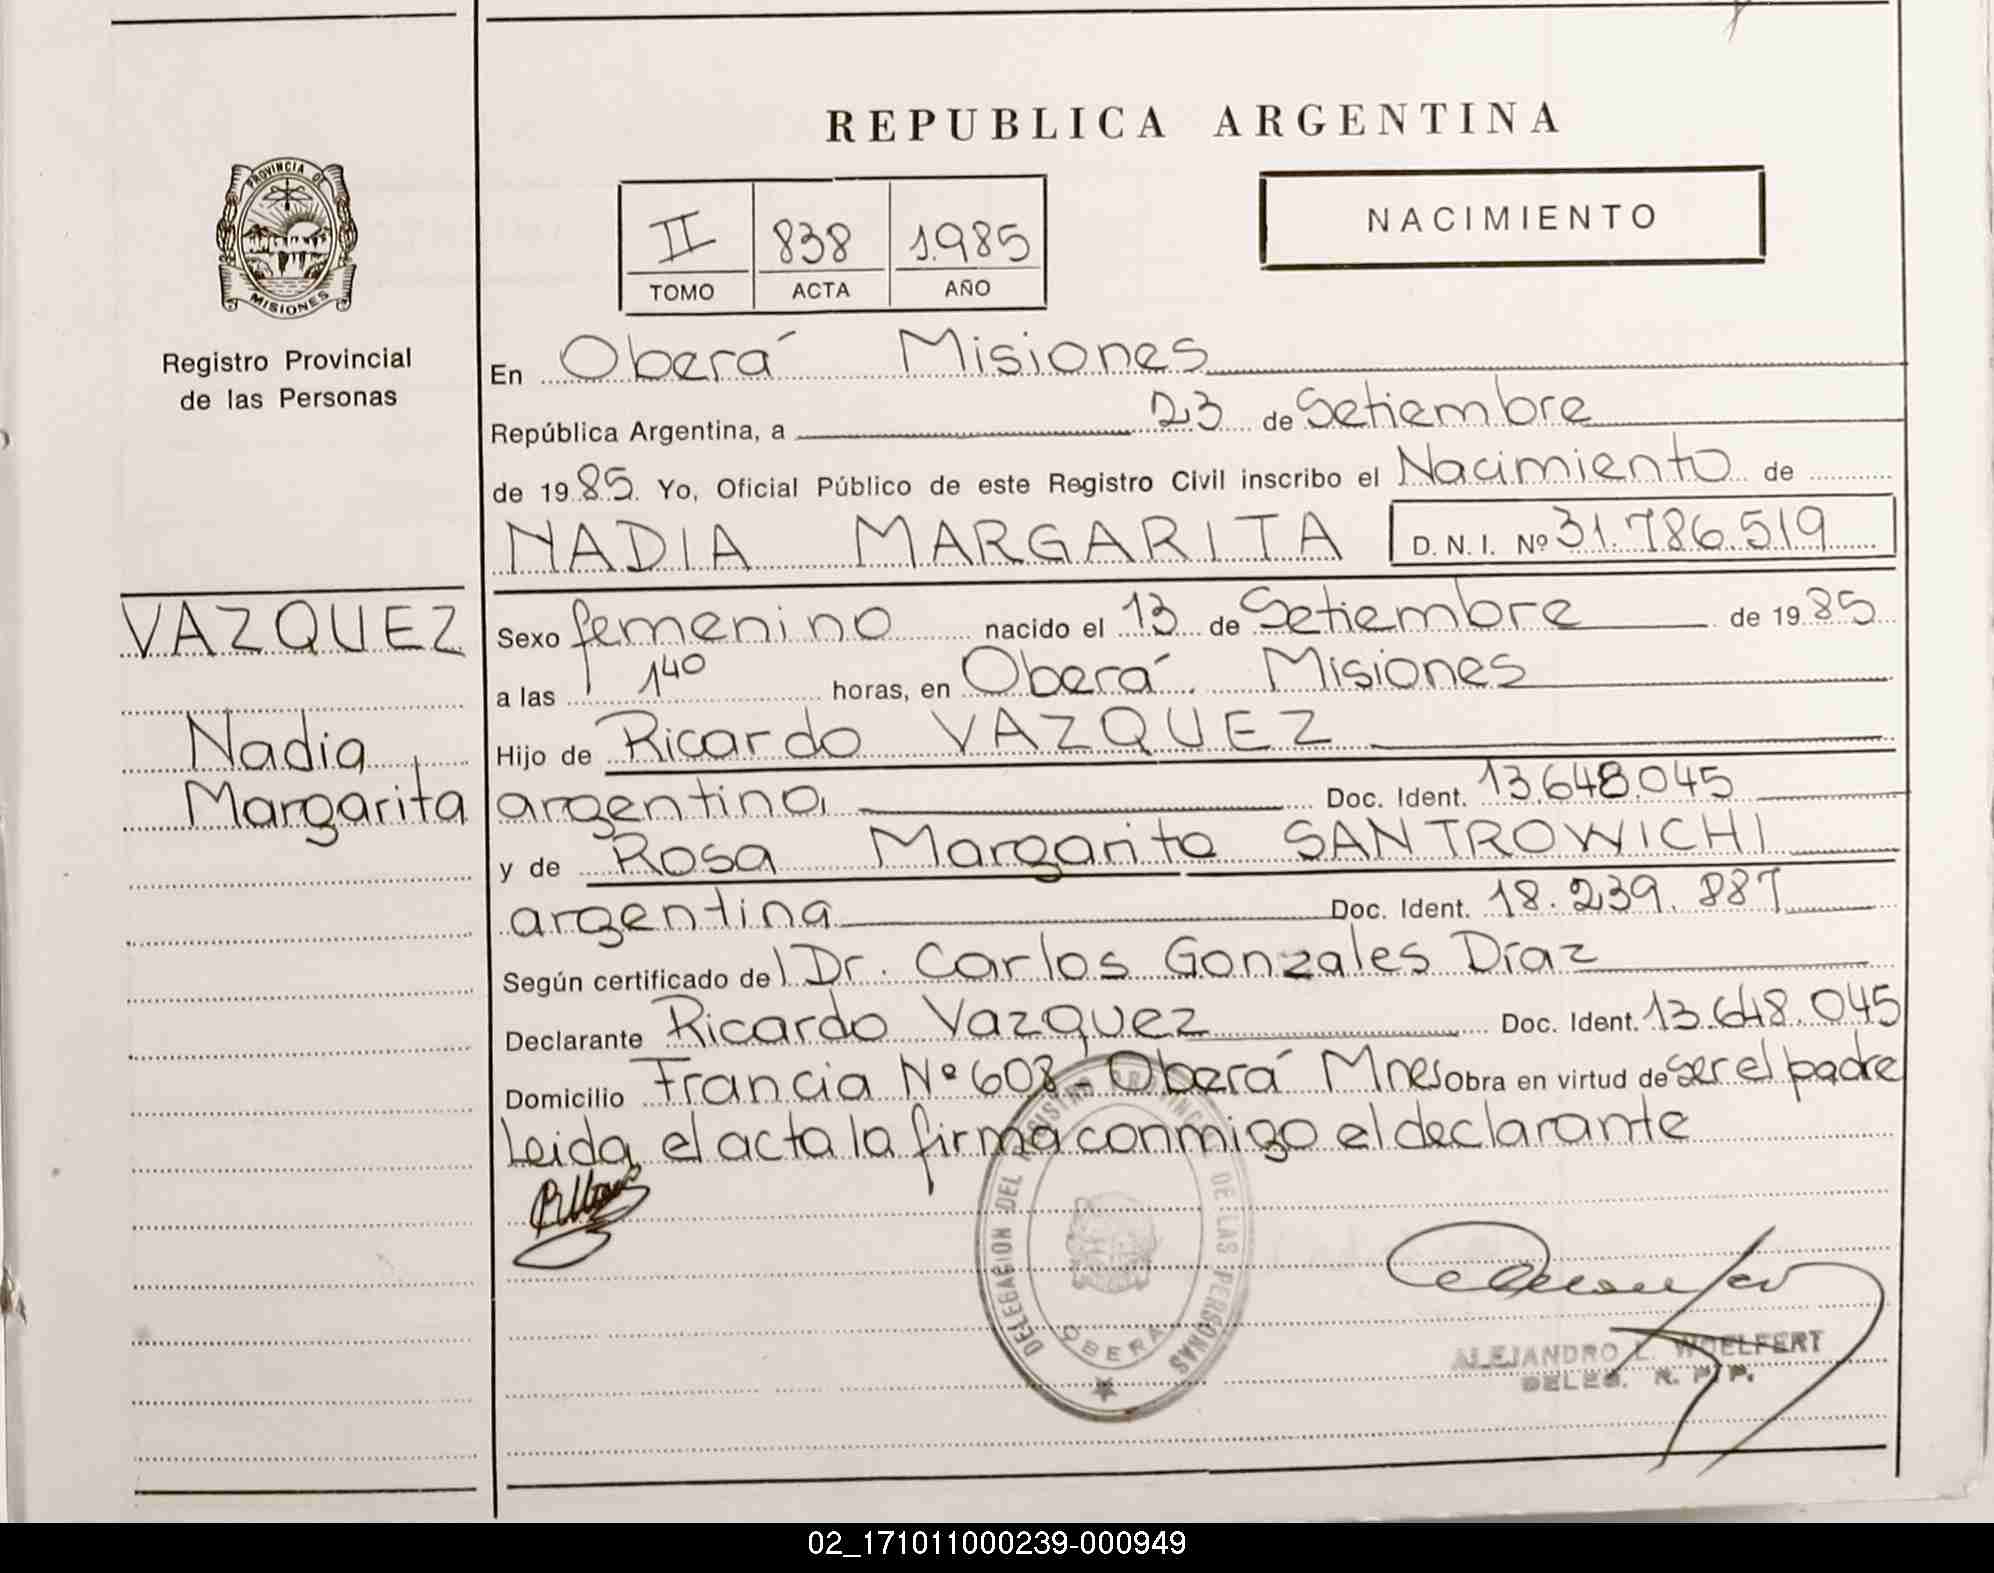 REPUBLICA ARGENTINA
PROVINCIA DE
MISIONES
Registro Provincial
de las Personas
II 838 1.985
TOMO ACTA AÑO
NACIMIENTO
En Oberá Misiones
República Argentina, a 23 de Setiembre
de 1985. Yo, Oficial Público de este Registro Civil inscribo el Nacimiento de
NADIA MARGARITA D. N. I. Nº 31.786.519
VAZQUEZ
Nadia
Margarita
Sexo femenino nacido el 13 de Setiembre de 1985
a las 1 40 horas, en Oberá Misiones
Hijo de Ricardo VAZQUEZ
argentino, Doc. Ident. 13.648.045
y de Rosa Margarita SANTROWICHI
argentina Doc. Ident. 18.239.887
Según certificado del Dr. Carlos Gonzales Díaz
Declarante Ricardo Vazquez Doc. Ident. 13.648.045
Domicilio Francia Nº 608 - Oberá Mnes Obra en virtud de ser el padre
Leida el acta la firma conmigo el declarante
DELEGACION DEL REGISTRO PROVINCIAL DE LAS PERSONAS
OBERA
ALEJANDRO L. WOELFERT
DELEG. R. P. P.
02_171011000239-000949